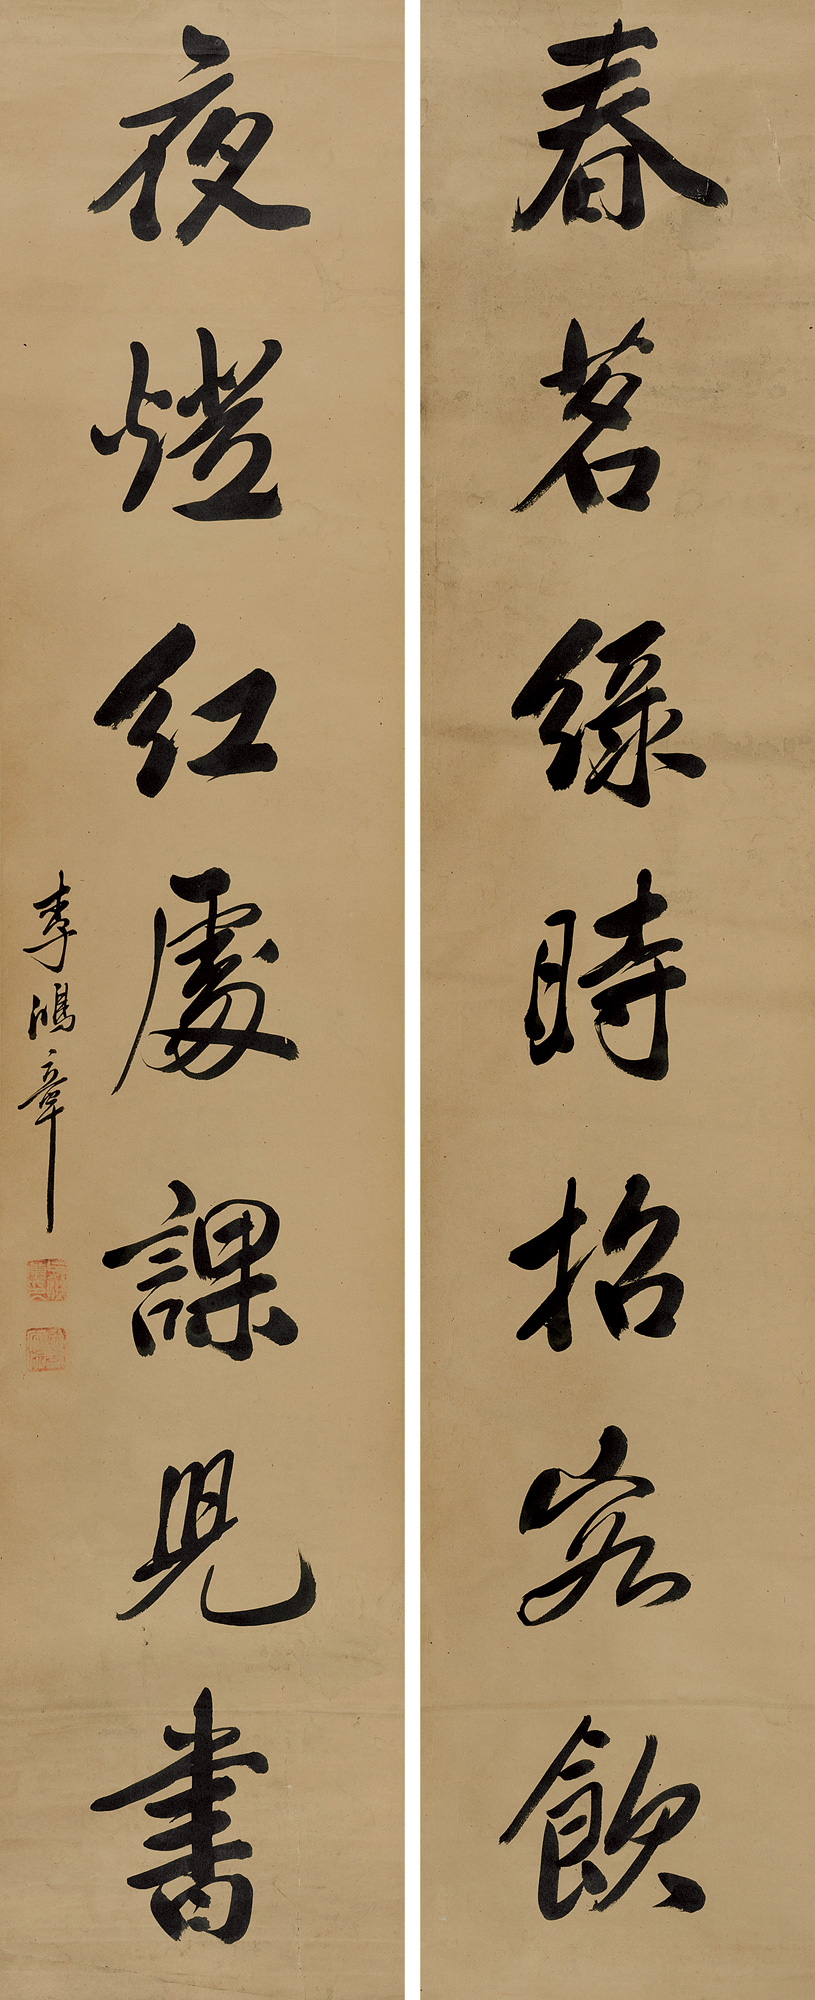 春茗綠時招客飲
夜燈紅處課兒書
李鴻章